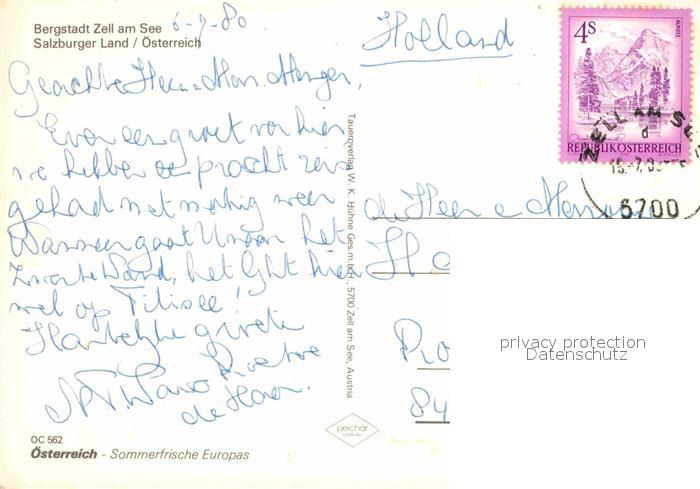 Bergstadt Zell am See
Salzburger Land / Österreich
6-7-80
Holland
4S
ALMSEE
REPUBLIK ÖSTERREICH
ZELL AM SE
d
5700
Geachte Heer en Mevr.
Even een groet van hier
we hebben een pracht reis
gehad met matig weer
Wanneer gaat U naar het
Zwarte Woud, het lijkt hier
wel op Titisee!
Hartelijke groeten
de Heer e Mevrouw
H
Ro
84
Tauernverlag W. K. Hühne Ges.m.b.H., 5700 Zell am See, Austria
privacy protection
Datenschutz
peichär
OC 562
Österreich - Sommerfrische Europas